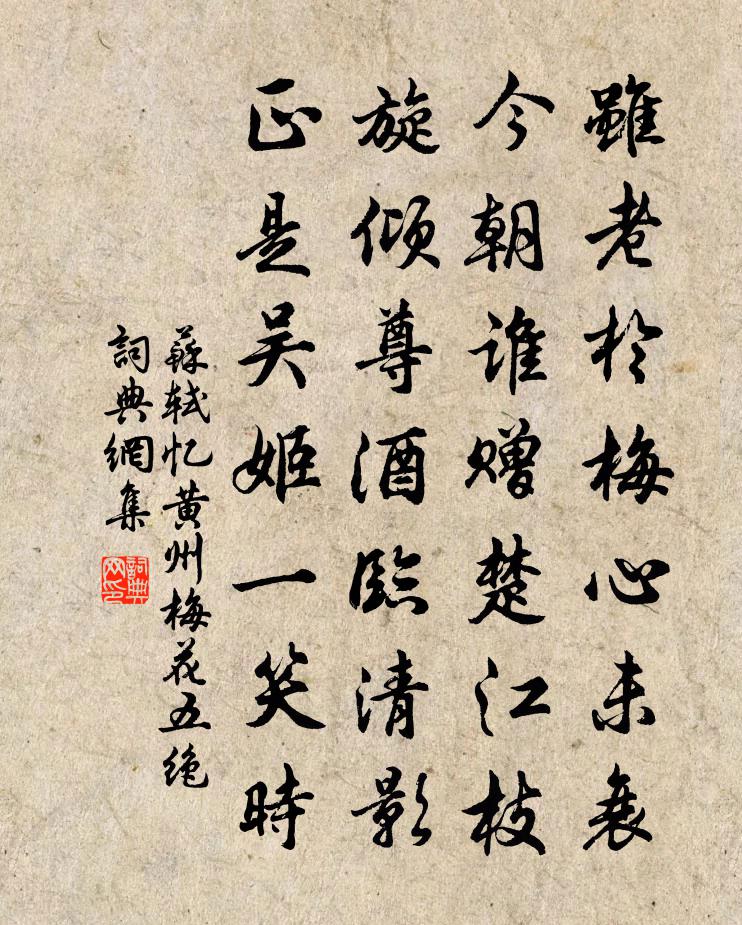 雖老於梅心未衰
今朝誰赠楚江枝
旋倾尊酒臨清影
正是吴姬一笑時
蘇軾忆黄州梅花五绝
詞典網集
詞典网印